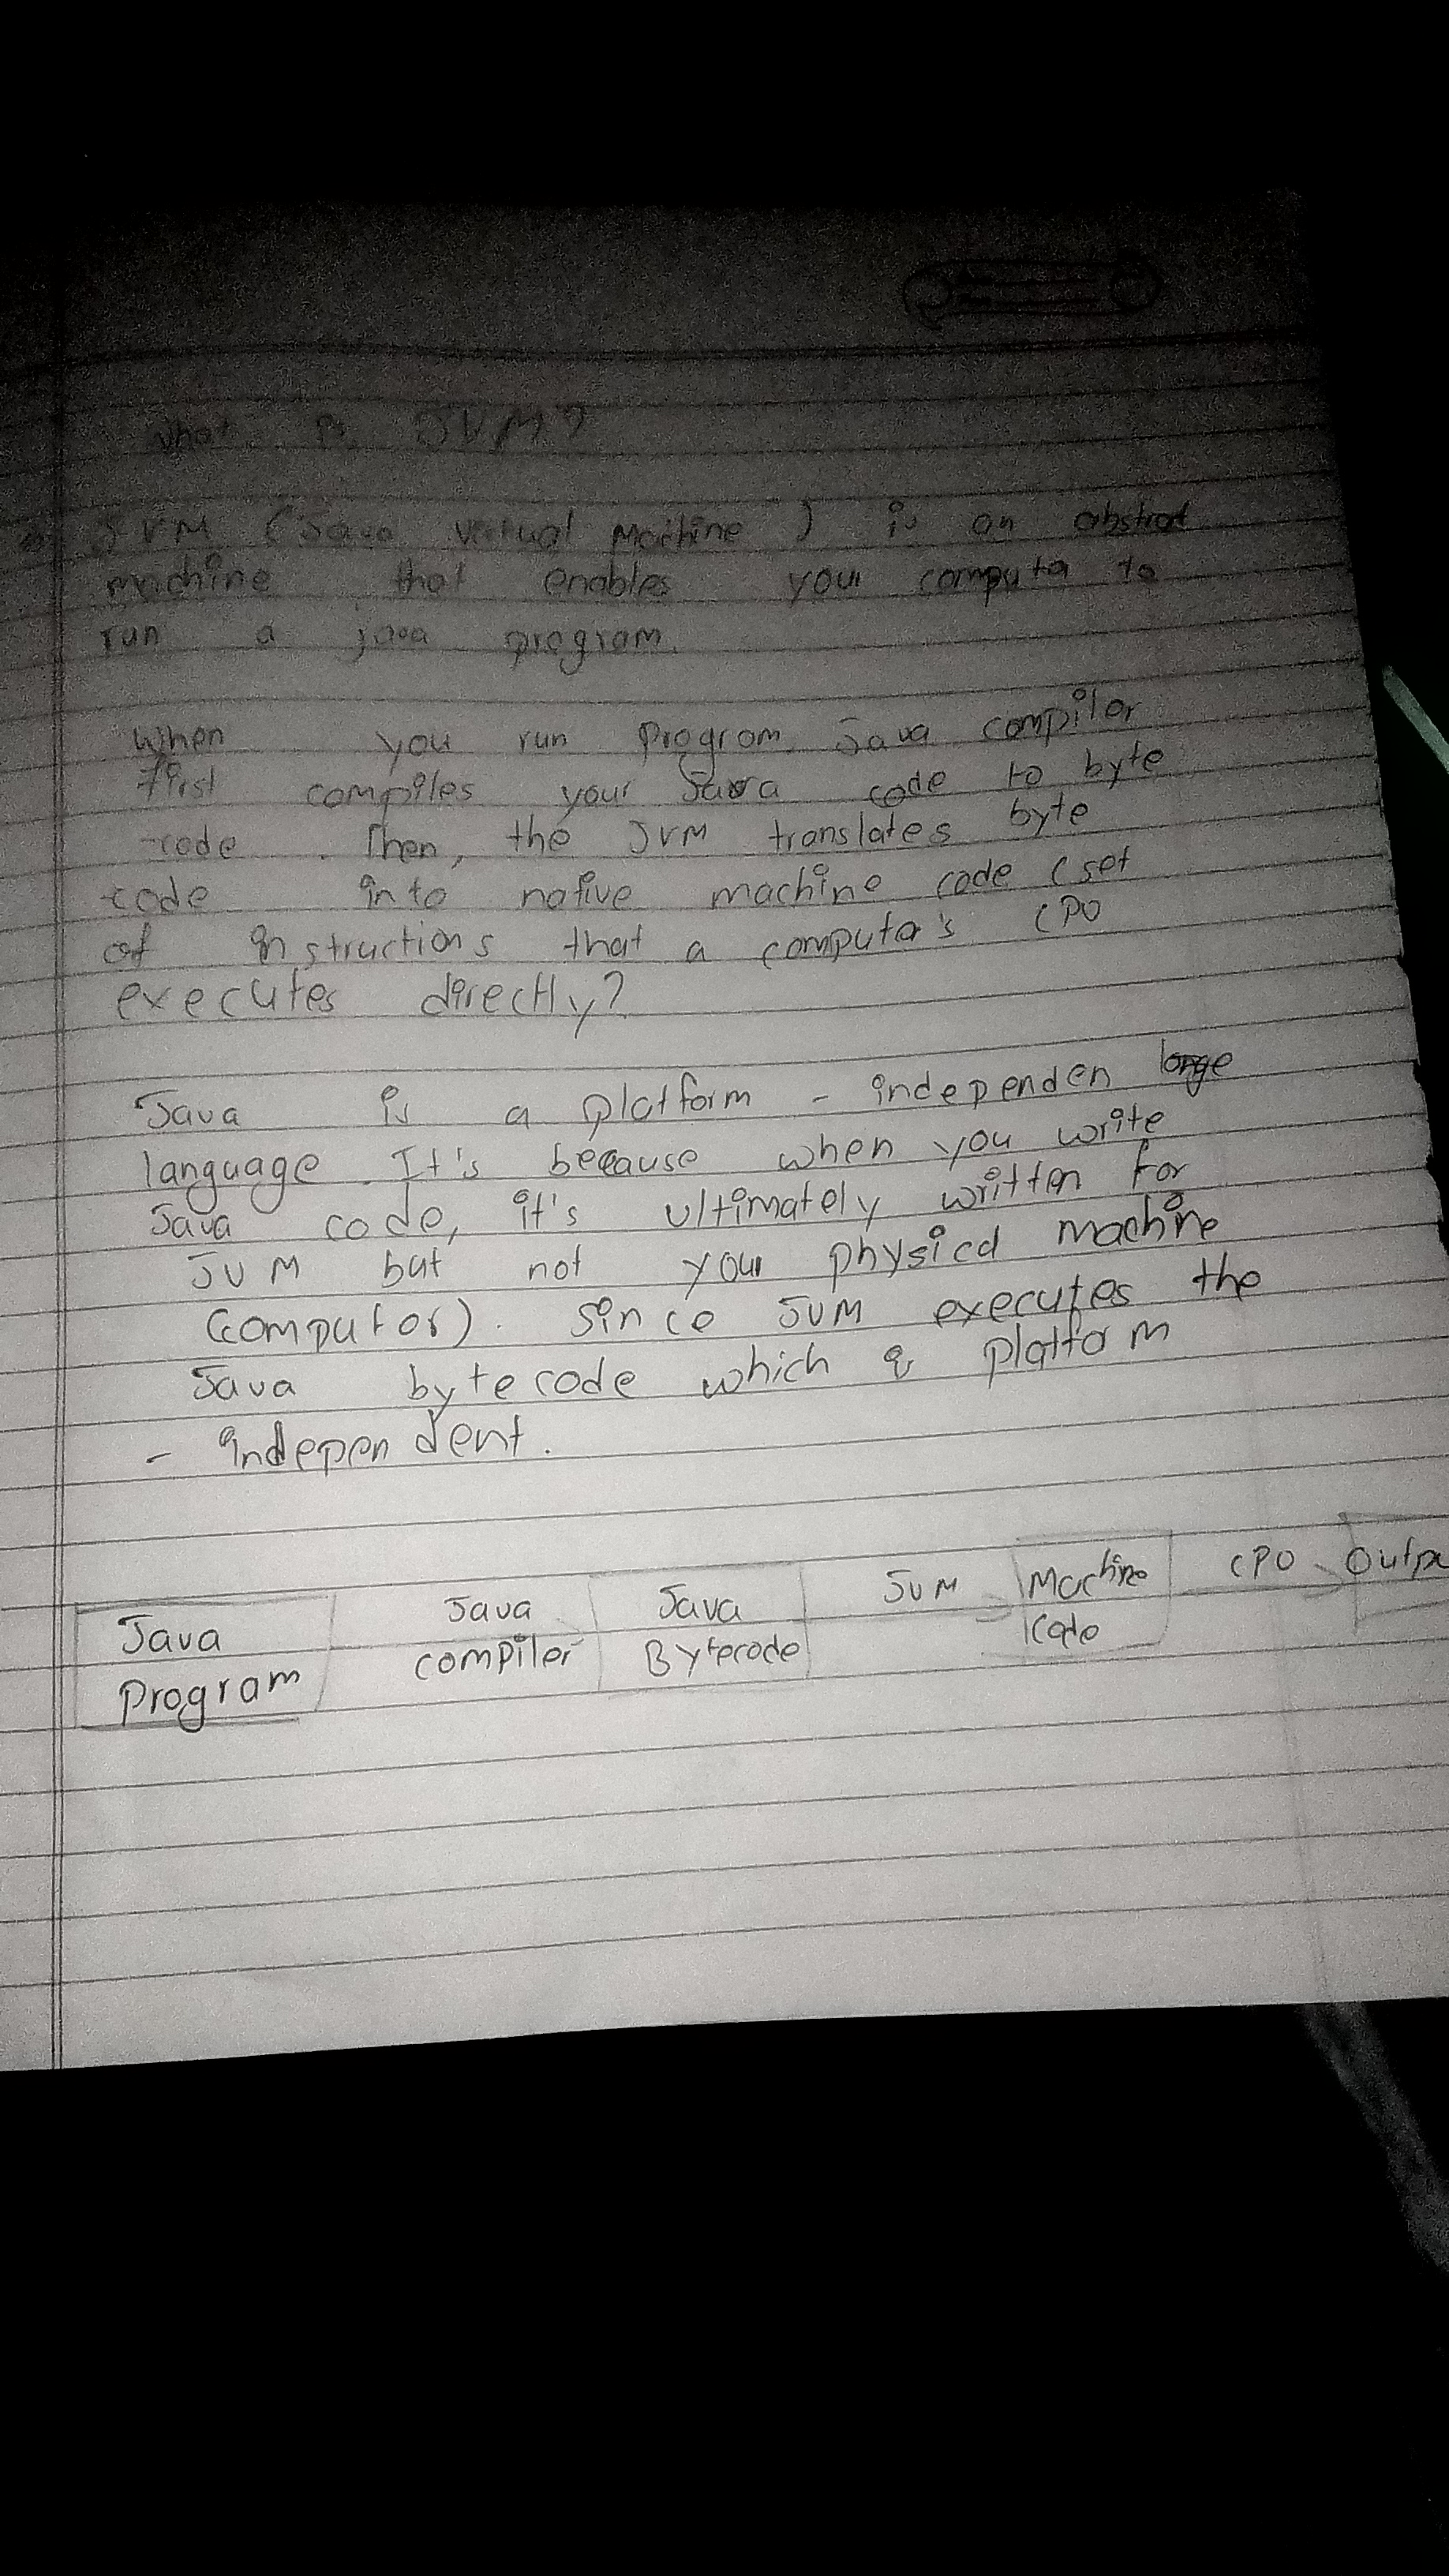 What is JVM?
JVM (Java Virtual Machine) is an abstract
machine that enables your computer to
run a java program.
When you run program, Java compiler
first compiles your Java code to byte
code. Then, the JVM translates byte
code into native machine code (set
of instructions that a computer's CPU
executes directly?
Java is a platform - independen
language. It's because when you write
Java code, it's ultimately written for
JVM but not your physical machine
(computer). Since JVM executes the
Java bytecode which is platform
- independent.
Java Program
Java compiler
Java Bytecode
JVM
Machine Code
CPU
Outpu